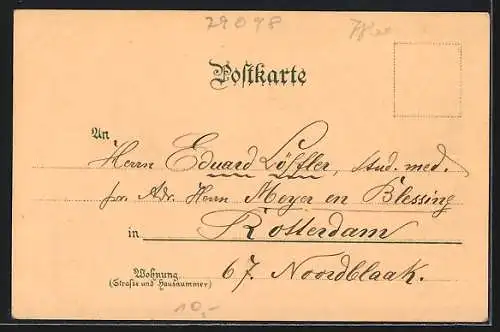 29098
Postkarte
An
Herrn Eduard Löffler, stud. med.
pr. Adr. Herrn Meyer en Blessing
in Rotterdam
Wohnung 67. Noordblaak.
(Straße und Hausnummer)
10,-